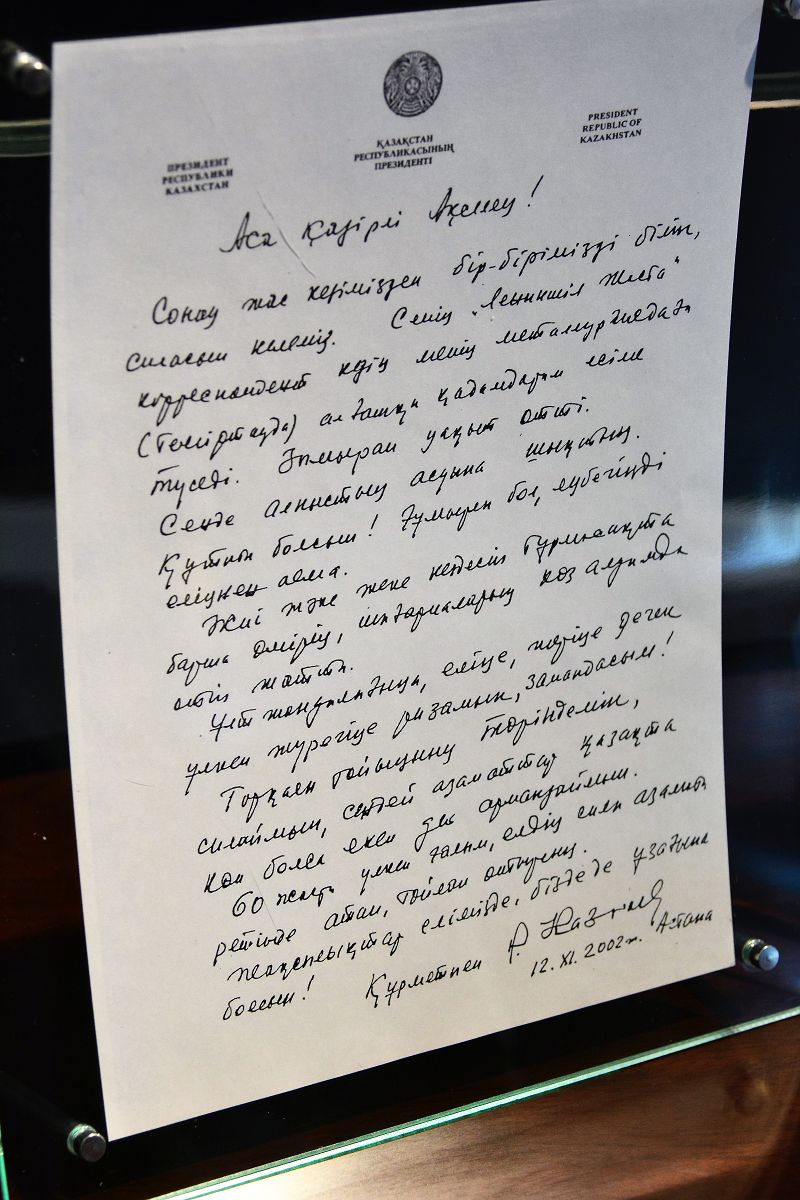 ПРЕЗИДЕНТ
РЕСПУБЛИКИ
КАЗАХСТАН
ҚАЗАҚСТАН
РЕСПУБЛИКАСЫНЫҢ
ПРЕЗИДЕНТІ
PRESIDENT
REPUBLIC OF
KAZAKHSTAN
Аса қадірлі Ақселеу!
Сонау жас кезімізден бір-бірімізді біліп,
сыласып келеміз. Сенің "Лениншіл жаста"
корреспондент кезің менің металлургиядағы
(Теміртауда) алғашқы қадамдарым есіме
түседі. уақыт өтті.
Сенде алпыстың асуына шықтың.
Құтты болсын! Ғұмырың бол, еңбегіңді
еліңнен алма.
Жиі және жеке кездесіп тұрмасақта
барша өмірің, шығармаларың көз алдымда
өтіп жатты.
Ұлт жанды еліңе, жеріңе деген
үлкен жүрегіңе ризамын, замандасым!
Торқалы тойыңның төрінде
силаймын, сендей азаматтар қазақта
көп болса екен деп армандаймын.
60 жасты үлкен ғалым, елдің силы азаматы
ретінде атап, тойлап отырсың.
Жақсылықтар елімізде, бізде де ұзағына
болсын! Құрметпен
12.XI.2002 ж. Астана